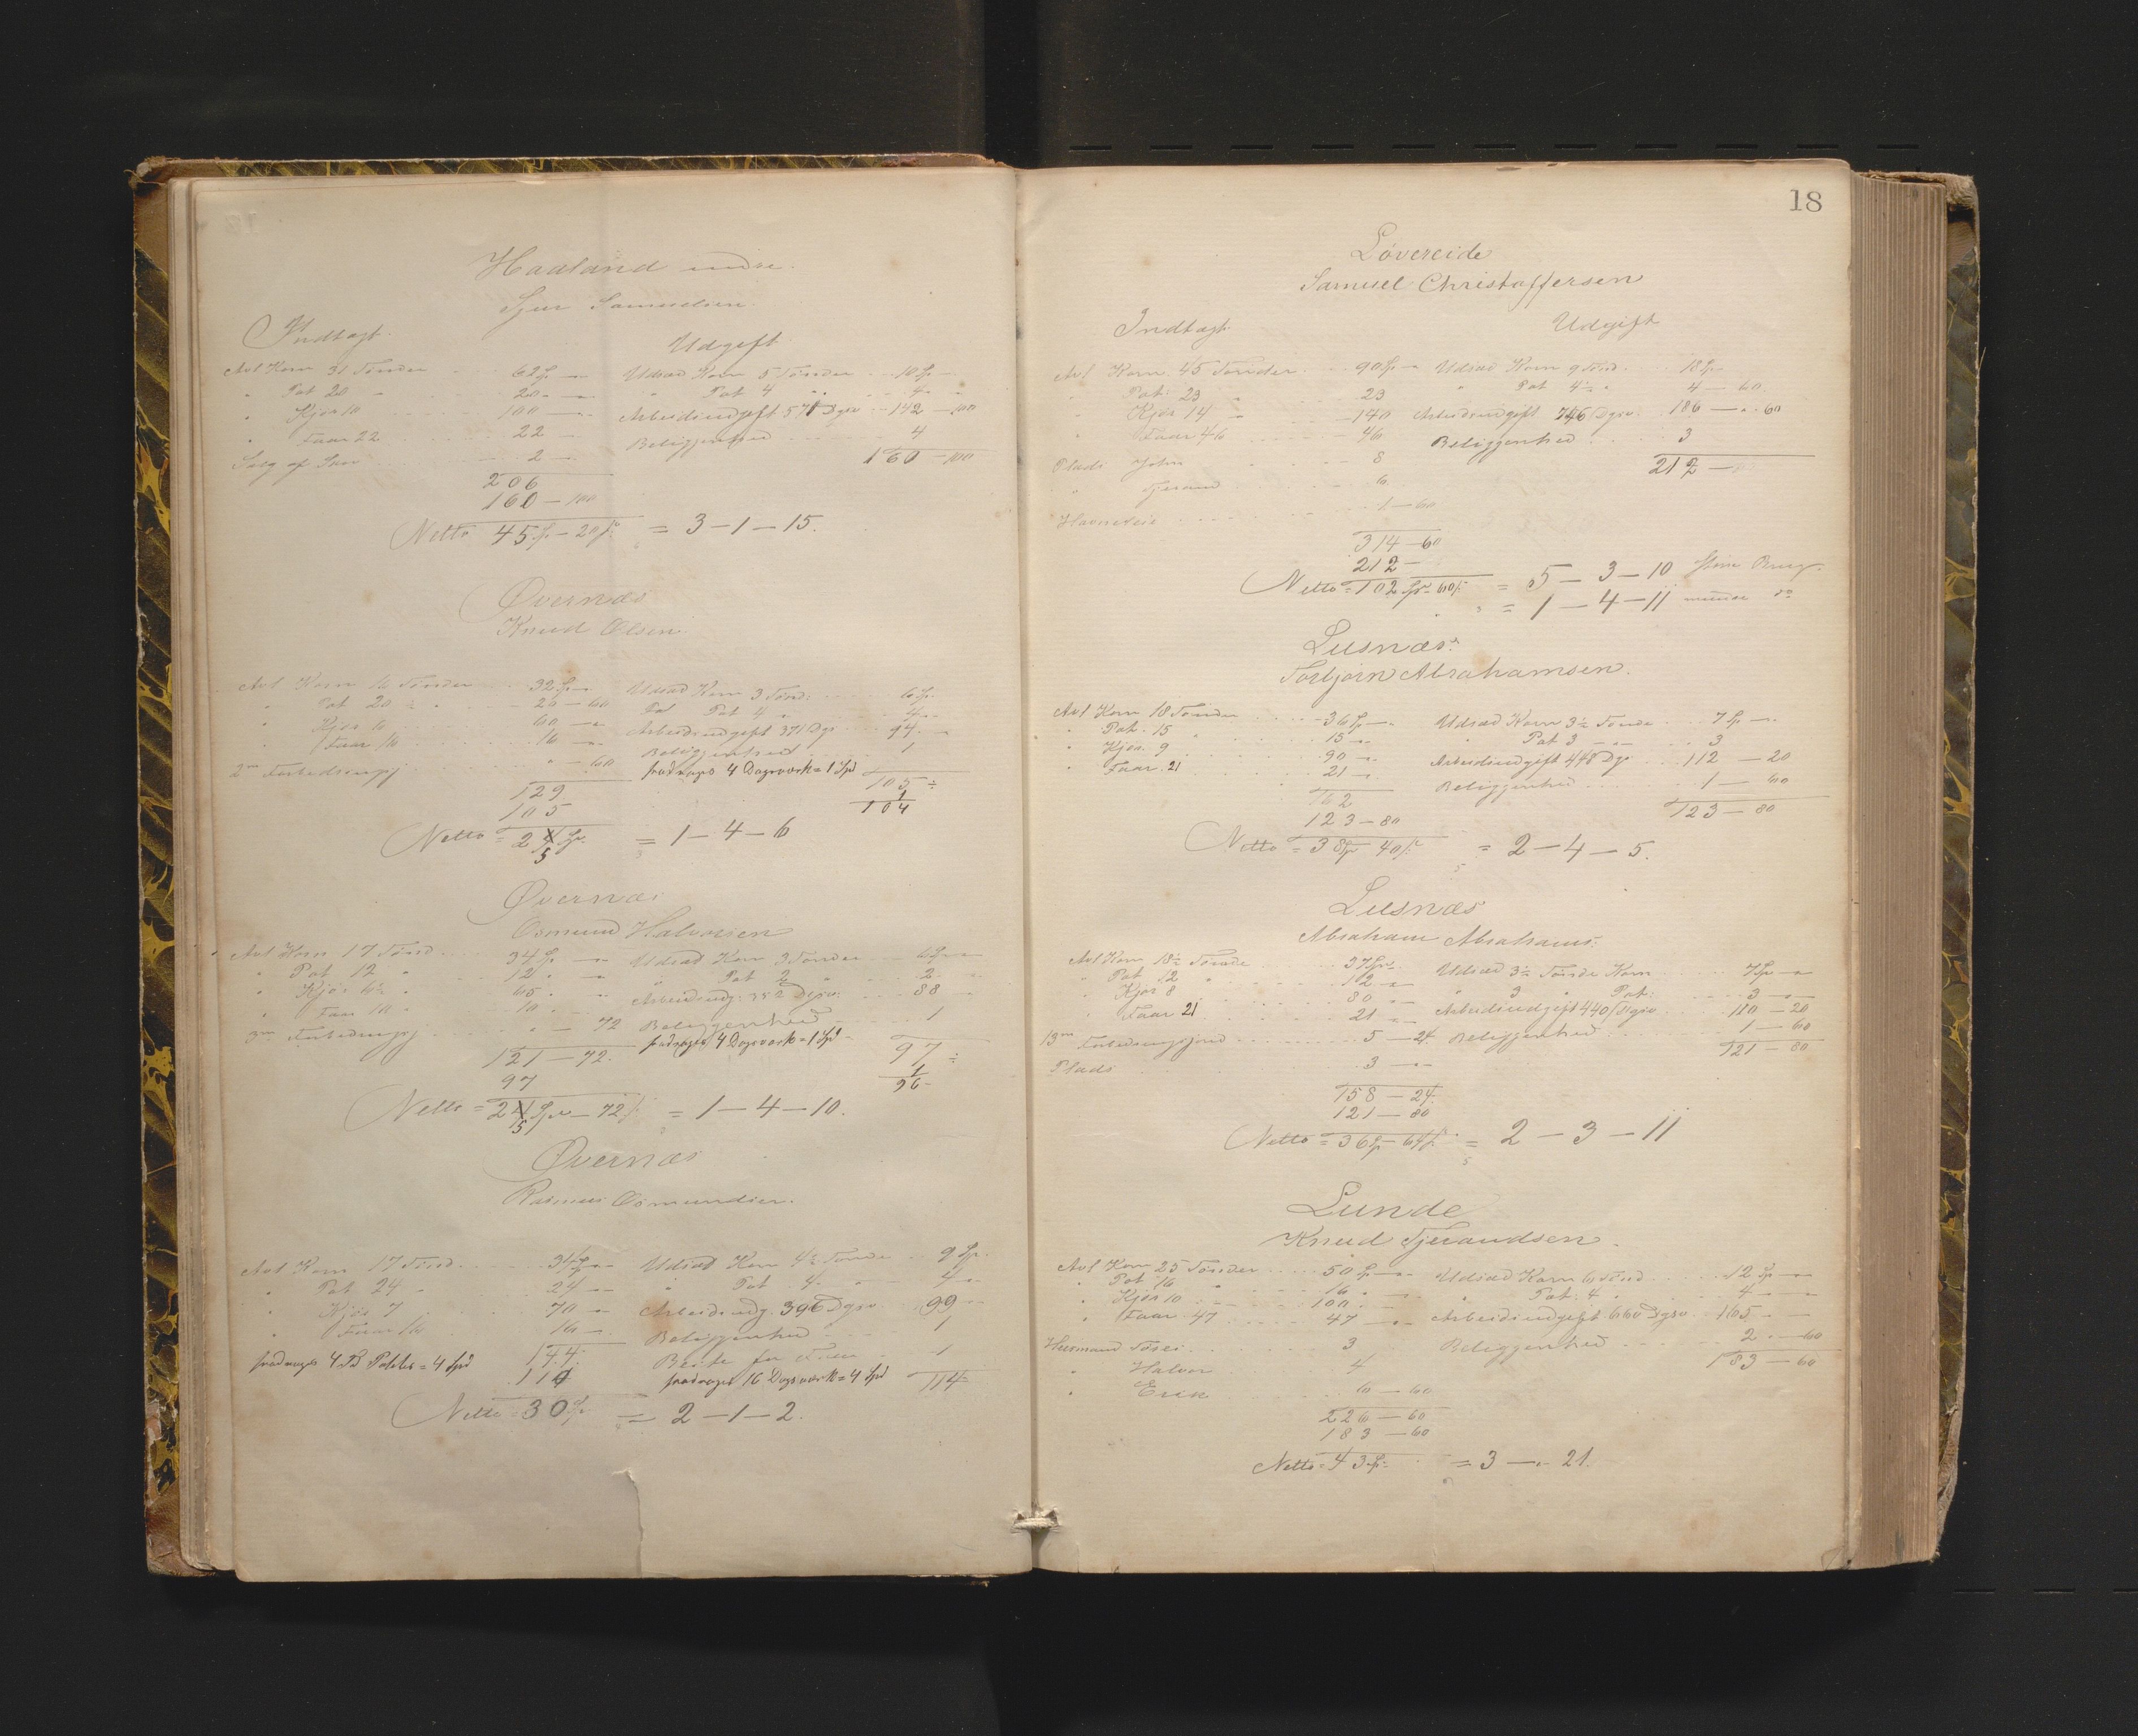 Haaland indre.
Sjur Samuelsen.
Indtægt. Udgift
Avl Korn 31 Tønder 62 Sp — Udsæd Korn 5 Tønder 10 Sp —
" Pot 20 " 20 — " Pot 4 " 4 —
" Kjør 10 100 — Arbeidsudgift 571 Dgsv 142 — 100
" Faar 22 22 — Beliggenhed 4
Salg af 2 — 160 — 100
206
160 — 100
Netto 45 Sp — 20 s = 3 — 1 — 15.
Øvernæs
Knud Olsen.
Avl Korn 16 Tønder 32 Sp — Udsæd Korn 3 Tønd: 6 Sp.
" Pot 20 ½ " 20 — 60 Pot 4 " 4 —
" Kjør 6 60 — Arbeidsudgift 371 Dgs 94 —
" Faar 16 16 — Beliggenhed 1
2 m Forbedringsj " — 60 fradrages 4 Dagsværk = 1 Spd 105 ÷
129 1
105 104
Netto = 24 Sp. = 1 — 4 — 6
5
Øvernæs
Osmund Halvorsen
Avl Korn 17 Tønd. 34 Sp — Udsæd Korn 3 Tønder 6 Sp —
" Pot 12 " 12 " — " Pot 2 " 2 —
" Kjør 6½ " 65 " " Arbeidsudg: 352 Dgsv: 88 —
" Faar 10 " 10 " Beliggenhed 1
3 m Forbedringsj " — 72 fradrages 4 Dagsværk = 1 Spd
121 — 72. 97 ÷
97 1
96 —
Netto = 24 Spd — 72 s = 1 — 4 — 10.
5
Øvernæs
Rasmus Osmundsen.
Avl Korn 17 Tønd. 34 Sp — Udsæd Korn 4½ Tønde 9 Sp.
" Pot 24 " 24 — " Pot 4 " — 4 —
" Kjør 7 70 — Arbeidsudg. 396 Dgsv 99 —
" Faar 16 16 — Beliggenhed 1
144. Beite for 1
fradrages 4 Td Poteter = 4 Spd 114 fradrages 16 Dagsværk = 4 Spd 114
Netto = 30 Sp = 2 — 1 — 2.
18
Løvereide
Samuel Christoffersen
Indtægt. Udgift
Avl Korn. 45 Tønder. 90 Sp — Udsæd Korn 9 Tønd. 18 Sp —
" Pot: 23 " 23 " Pot 4½ " 4 — 60.
Kjør 14 " 140 Arbeidsudgift 746 Dgsv. 186 — " 60
" Faar 46 46 Beliggenhed 3
Plads John 8 212 —
" Tjerand 6
Havneleie 1 — 60
314 — 60
212 —
Netto = 102 Spd — 60 s = 5 — 3 — 10 større Brug.
" = 1 — 4 — 11 mindre do
Lusnæs.
Torbjørn Abrahamsen.
Avl Korn 18 Tønder 36 Sp — Udsæd Korn 3½ Tønde 7 Sp —
" Pot. 15 " 15 — " Pot 3 — " — 3
" Kjør. 9 90 — Arbeidsudgift 448 Dgs 112 — 20
" Faar. 21 21 — Beliggenhed 1 — 60
162 123 — 80
123 — 80
Netto = 38 Sp 40 s = 2 — 4 — 5.
Lusnæs
Abraham Abrahams:
Avl Korn 18½ Tønde 37 Spd — Udsæd 3½ Tønde Korn 7 Sp —
" Pot 12 " 12 — " 3 " Pot: 3 —
" Kjør 8 80 " — Arbeidsudgift 440 Dgsv 110 — 20
" Faar 21 21 " — Beliggenhed 1 — 60
13 m Forbedringsjord 5 — 24 121 — 80
Plads 3 —
158 — 24.
121 — 80
Netto = 36 Sp — 64 s = 2 — 3 — 11
Lunde
Knud Tjerandsen.
Avl Korn 25 Tønder 50 Sp — Udsæd Korn 6 Tønd 12 Sp —
" Pot 16 " 16 — " Pot: 4 " 4 —
" Kjør 10 100 " — Arbeidsudgift 660 Dgsv 165 —
" Faar 47 47 — Beliggenhed 2 " — 60
Huusmand Tøres 3 183 — 60
" Halvor 4
" Erik 6 — 60
226 — 60
183 — 60
Netto = 43 Sp = 3 — " — 21.